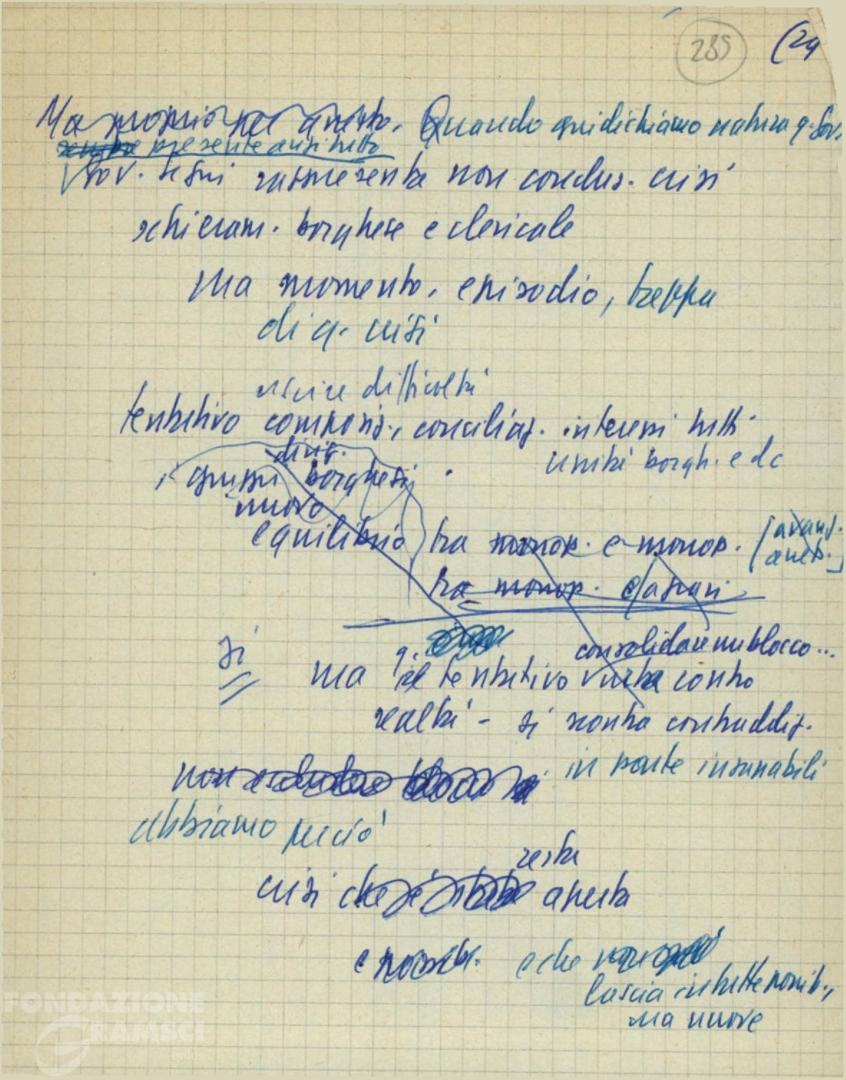 285 (24
Ma proprio per questo. Quando giudichiamo natura q. Gov.
sempre presente anzitutto
Gov. Segni rappresenta non conclus. crisi
schieram. borghese e clericale
ma momento, episodio, tappa
di q. crisi
uscire difficoltà
tentativo composiz., conciliaz. interessi tutti
dirig. unità borgh. e dc
gruppi borghesi
nuovo
equilibrio tra monop. e monop.
tra monop. e agrari
consolidare un blocco...
sì ma q. tentativo urta contro
realtà - si scontra contraddiz.
in parte insanabili
abbiamo perciò
resta
crisi che aperta
e che
lascia intatte possib.,
ma nuove
FONDAZIONE
GRAMSCI